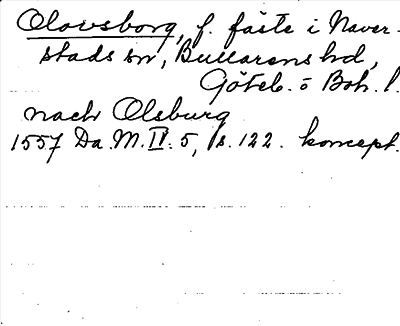 Olovsborg, f. fäste i Naver-
stads sn, Bullarens hd,
Göteb. o Boh. l.
nach Olsburg
1557 Da. M. IV: 5, s. 122. koncept.